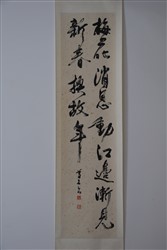 梅花消息動江邊漸見
新春換故年